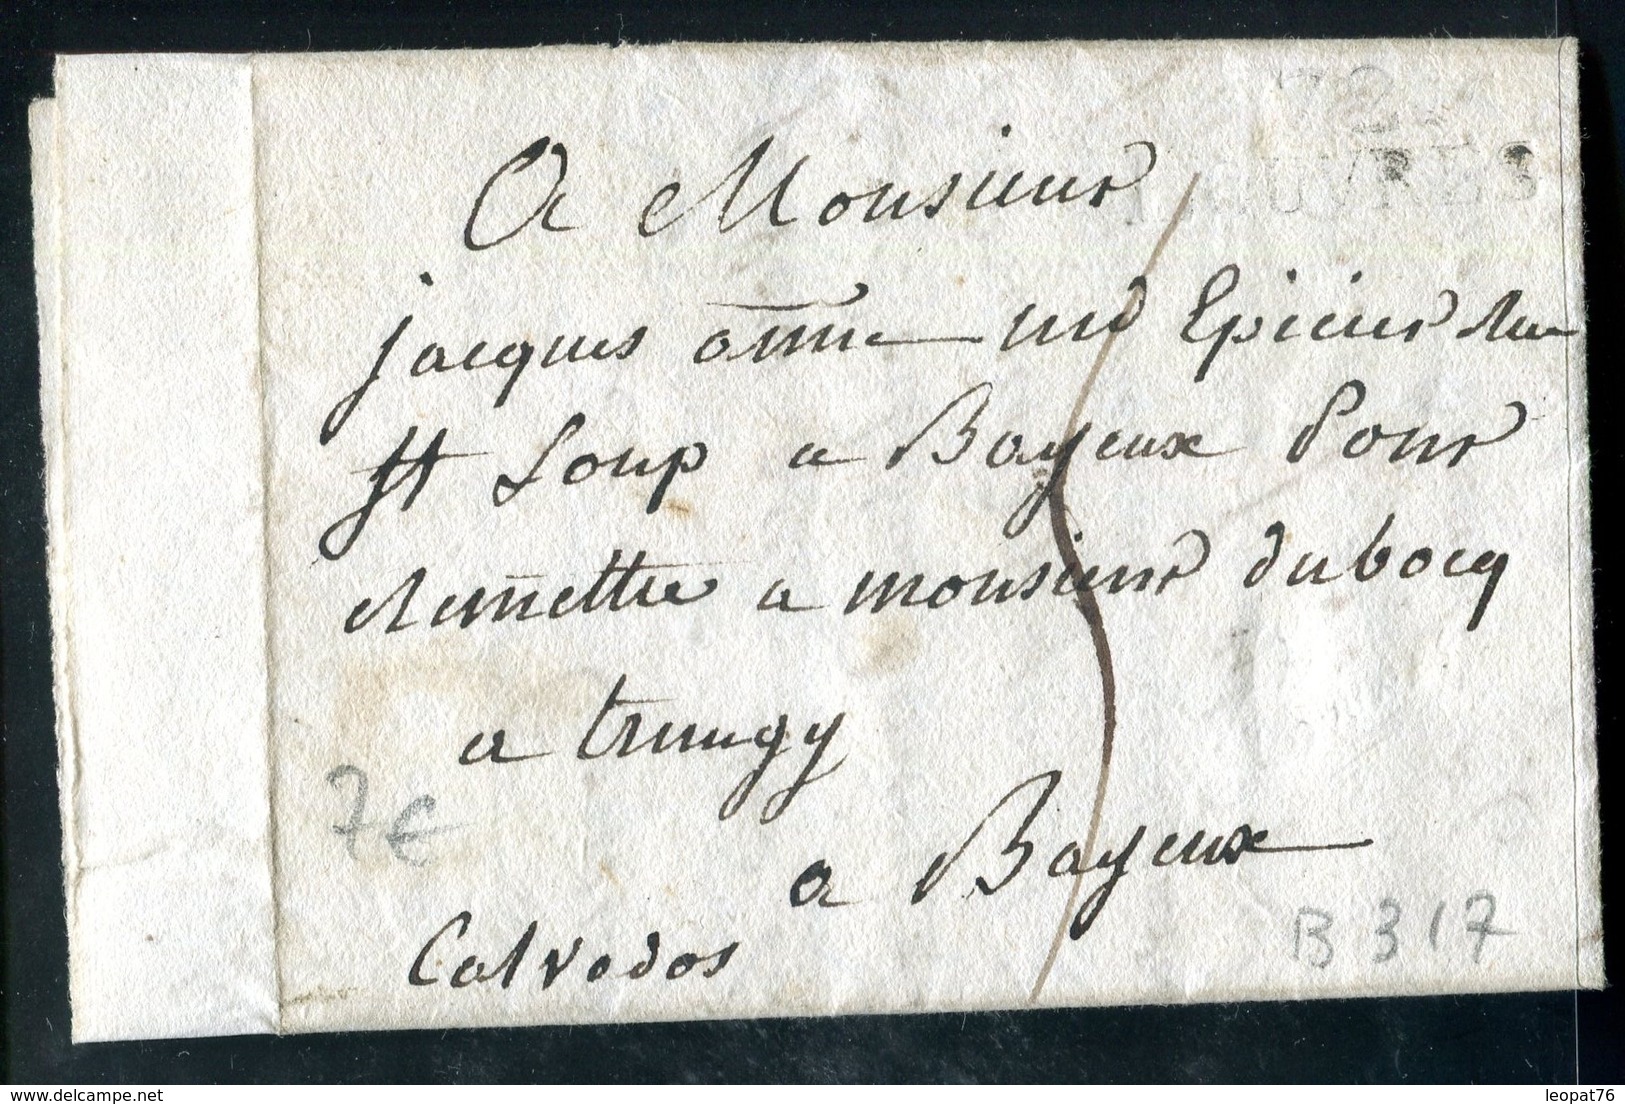 72
LOUVRES
A Monsieur
jacques anne md Epicier Rue
St Loup a Bayeux Pour
Remettre a monsieur dubocq
a trungy
a Bayeux
Calvados
7€
B 317
leopat76